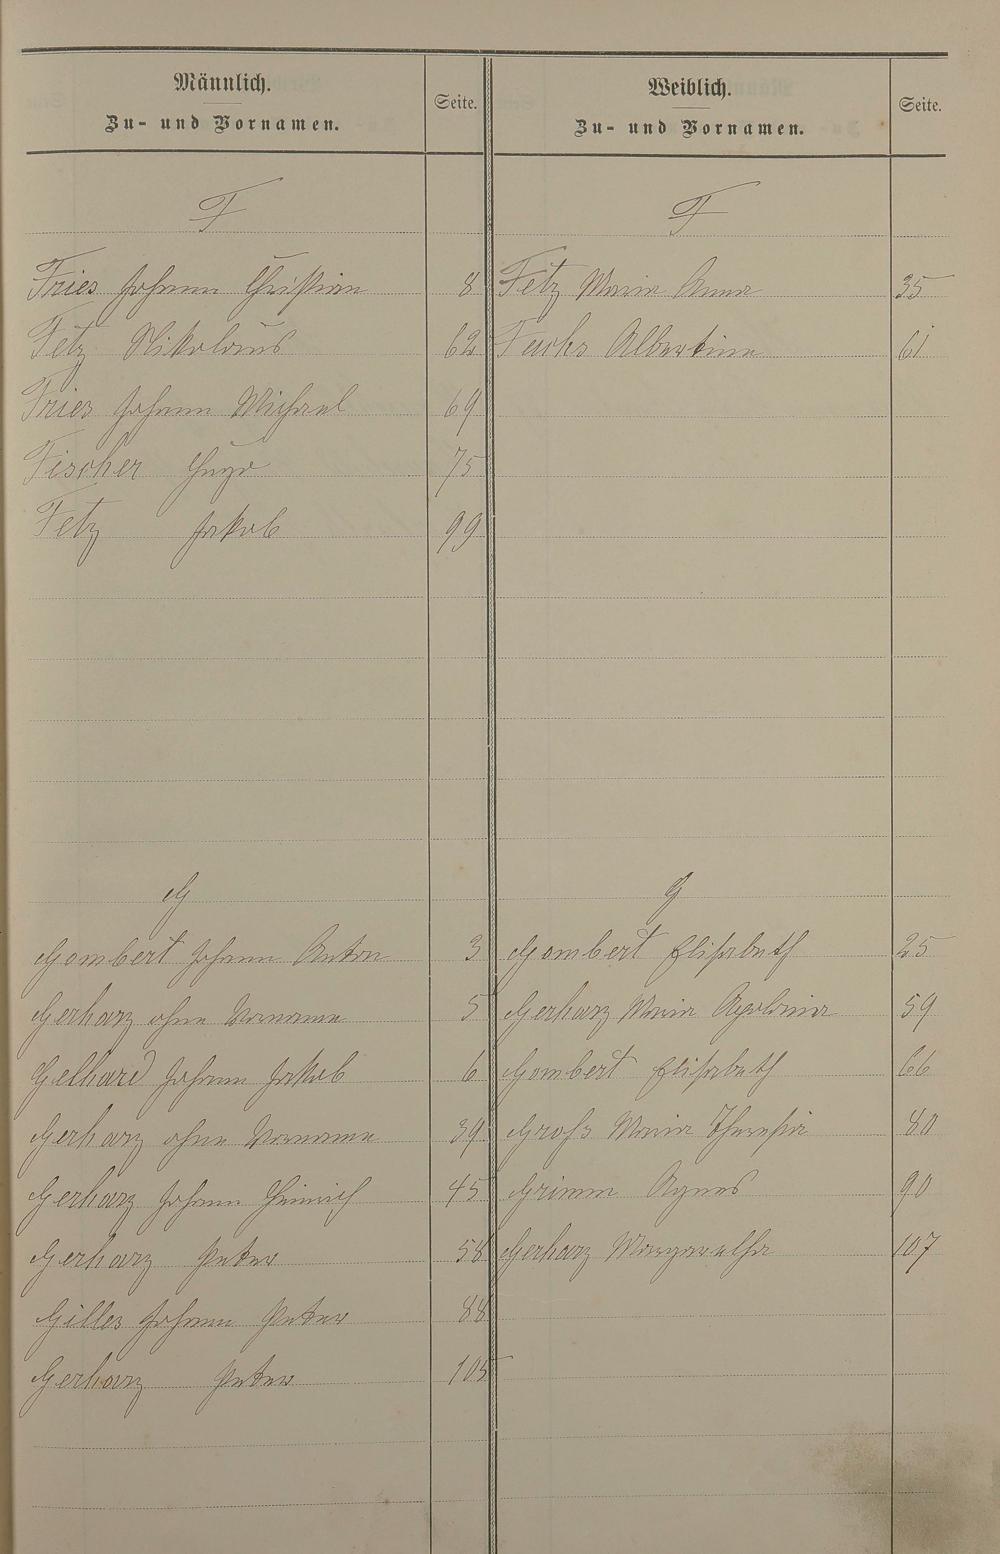 Männlich.
Zu- und Vornamen.
Seite.
F
Fries Johann Christian 8
Fetz Nikolaus 62
Fries Johann Michael 69
Fischer Hugo 75
Fetz Jakob 99
G
Gombert Johann Anton 3
Gerharz ohne Vorname 5
Gelhard Johann Jakob 6
Gerharz ohne Vorname 39
Gerharz Johann Heinrich 45
Gerharz Peter 58
Gilles Johann Peter 88
Gerharz Peter 105
Weiblich.
Zu- und Vornamen.
Seite.
F
Fetz Maria Anna 35
Fuchs Albertine 61
G
Gombert Elisabeth 25
Gerharz Maria Apolonia 59
Gombert Elisabeth 66
Groß Maria Theresia 80
Grimm Agnes 90
Gerharz Margaretha 107